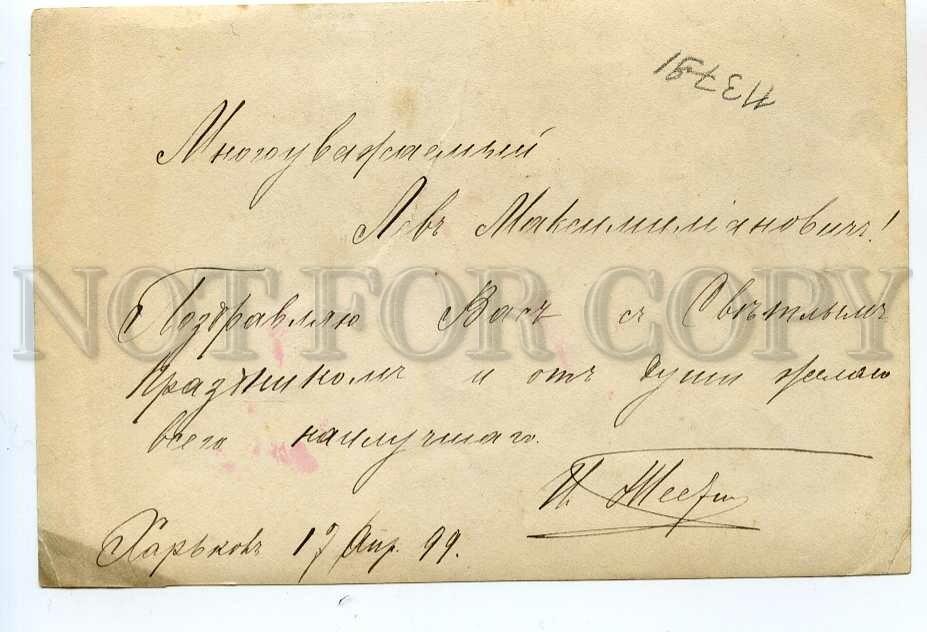 113791
Многоуважаемый
Левъ Максимилiановичъ!
Поздравляю Васъ съ Свѣтлымъ
Праздникомъ и отъ души желаю
всего наилучшаго.
Харьковъ 17 Апр. 99.
NOT FOR COPY